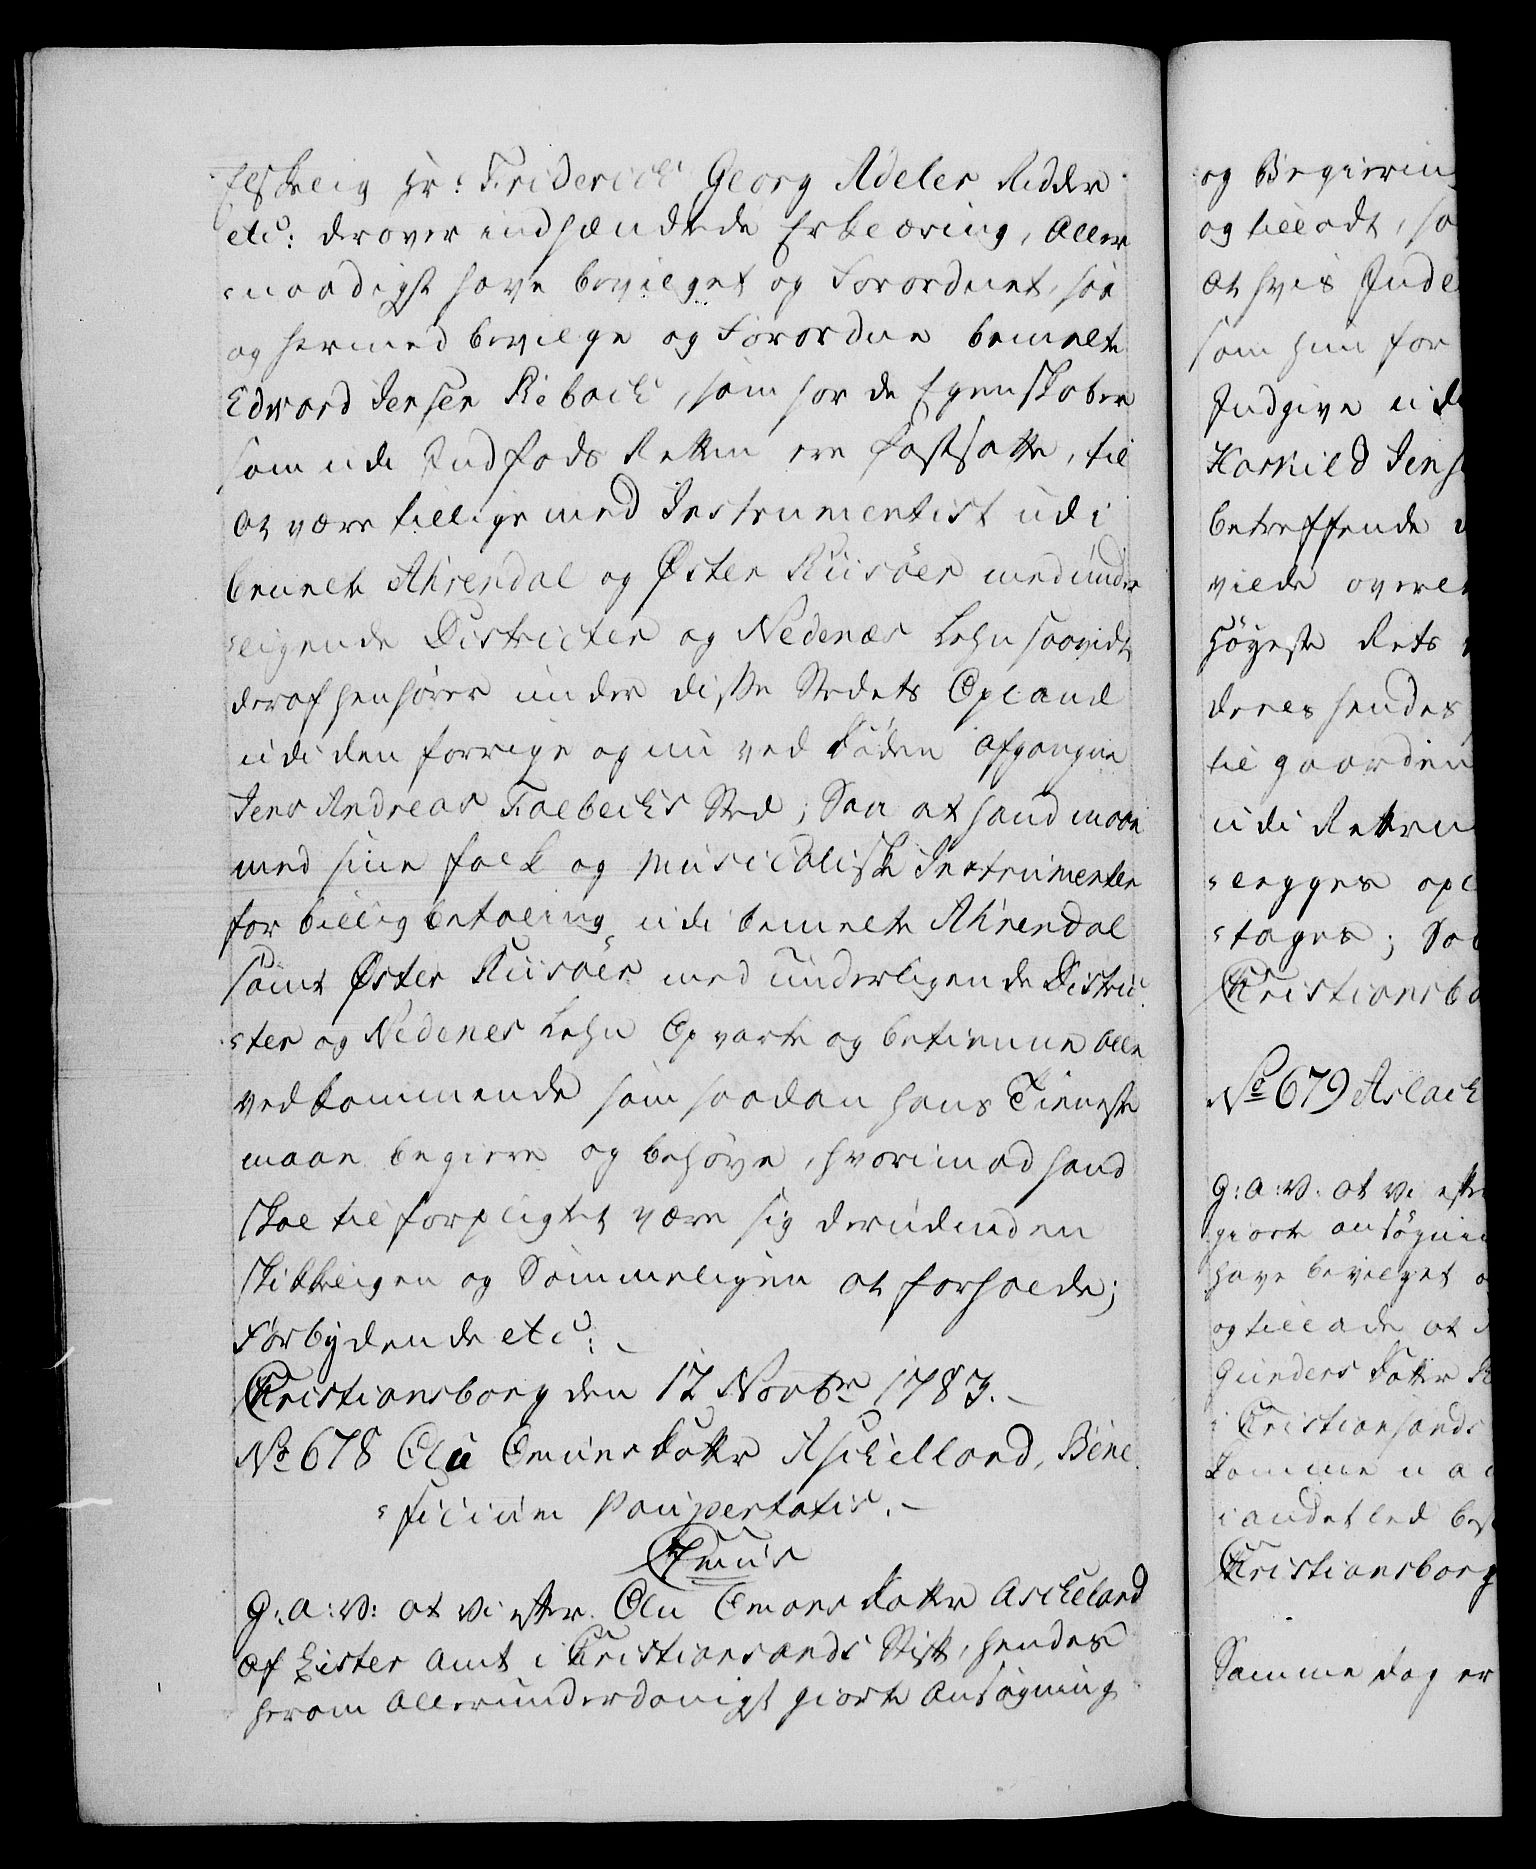 Elskelig Hr: Friderich Georg Adeler Ridder
etc: derover indhændede Erklæring, Aller
naadigst have bevilget og Forordnet, saa
og hermed bevilge og Forordne bemelte
Edvard Jensen Riback, som har de Egenskaber
som udi Indføds Retten ere fastsatte, til
at være tillige med Instrumentist udi
bemelte Ahrendal og Øster Riisöer med under
liigende Districter og Nedenæs Lehn saavidt
deraf henhører under disse Stedets Opland
udi den forrige og nu ved Døden afgangne
Jens Andreas Falbechs Sted; Saa at hand maa
med sine folk og Musicaliske Instrumenter
for billig betaling udi bemelte Ahrendal
samt Øster Riisöer med underligende Distric
ter og Nedenes Lehn Opvarte og betienne alle
vedkommende som saadan hans Tieneste
maae begiere og behøve, hvorimod hand
skal tilforpligtet være sig derudinden
skikkeligen og Sømmeligen at forholde;
Forbydende etc:
Christiansborg den 17 Novbr 1783.
No 678 Olu Omunsdatter Aschilland, Bene
ficium Paupertatis.
G: A: V: at Vi efter Olu Omonsdatter Ascheland
af Lister Amt i Christiansands Stift, hendes
herom Allerunderdanigst giorte Ansøgning
og Begiering
og tilladt, sa
at hvis Inde
som hun for
Indgive udi
Torkild Jens
betreffende
vilde overl
Høyeste Rets
deres hendes
til gaarden
udi Retten
legges opl
tages; Saa
Christiansbo
No 679 Aslach
G: A: V: at Vi efter
giorte ansøgning
have bevilget o
og tillade at
Gundersdatter
i Christiansands
komme u
i andet led bes
Christiansborg
Samme dag er